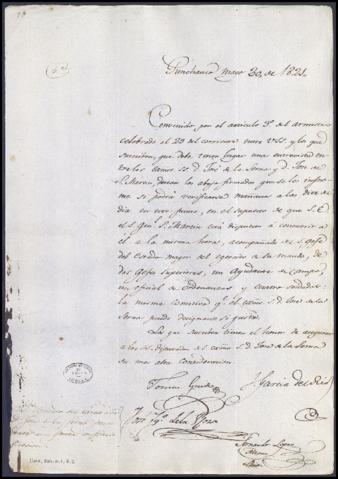 Punchauca mayo 30, de 1821.
Convenido por el articulo 3º del armisticio
celebrado el 23 del corriente entre V.SS. y los que
suscriben, que debe tener lugar una entrevista en
tre los Exmos SS. D. José de la Serna y D. José de
S. Martin desean los abajo firmados que se les infor
me si podrá verificarse mañana a las diez de
dia en este punto, en el supuesto de que S.E.
el S. Genl. S. Martin está dispuesto á concurrir á
él a la misma hora, acompañado de gefe
del Estado mayor del egercito de su mando, de
dos Gefes superiores, un Ayudante de campo,
un oficial de Ordenanzas y cuatro soldados:
la misma comitiva qe. el exmo S.D. José de la
Serna puede designar a su gusto.
Los que suscriben tienen el honor de asegurar
a los SS. Diputados del exmo S.D. José de la Serna
su mas alta consideracion.
Tomas Guido
J. Garcia del Rio
José Ygo. de la Rosa
Fernando Lopez
Aldana